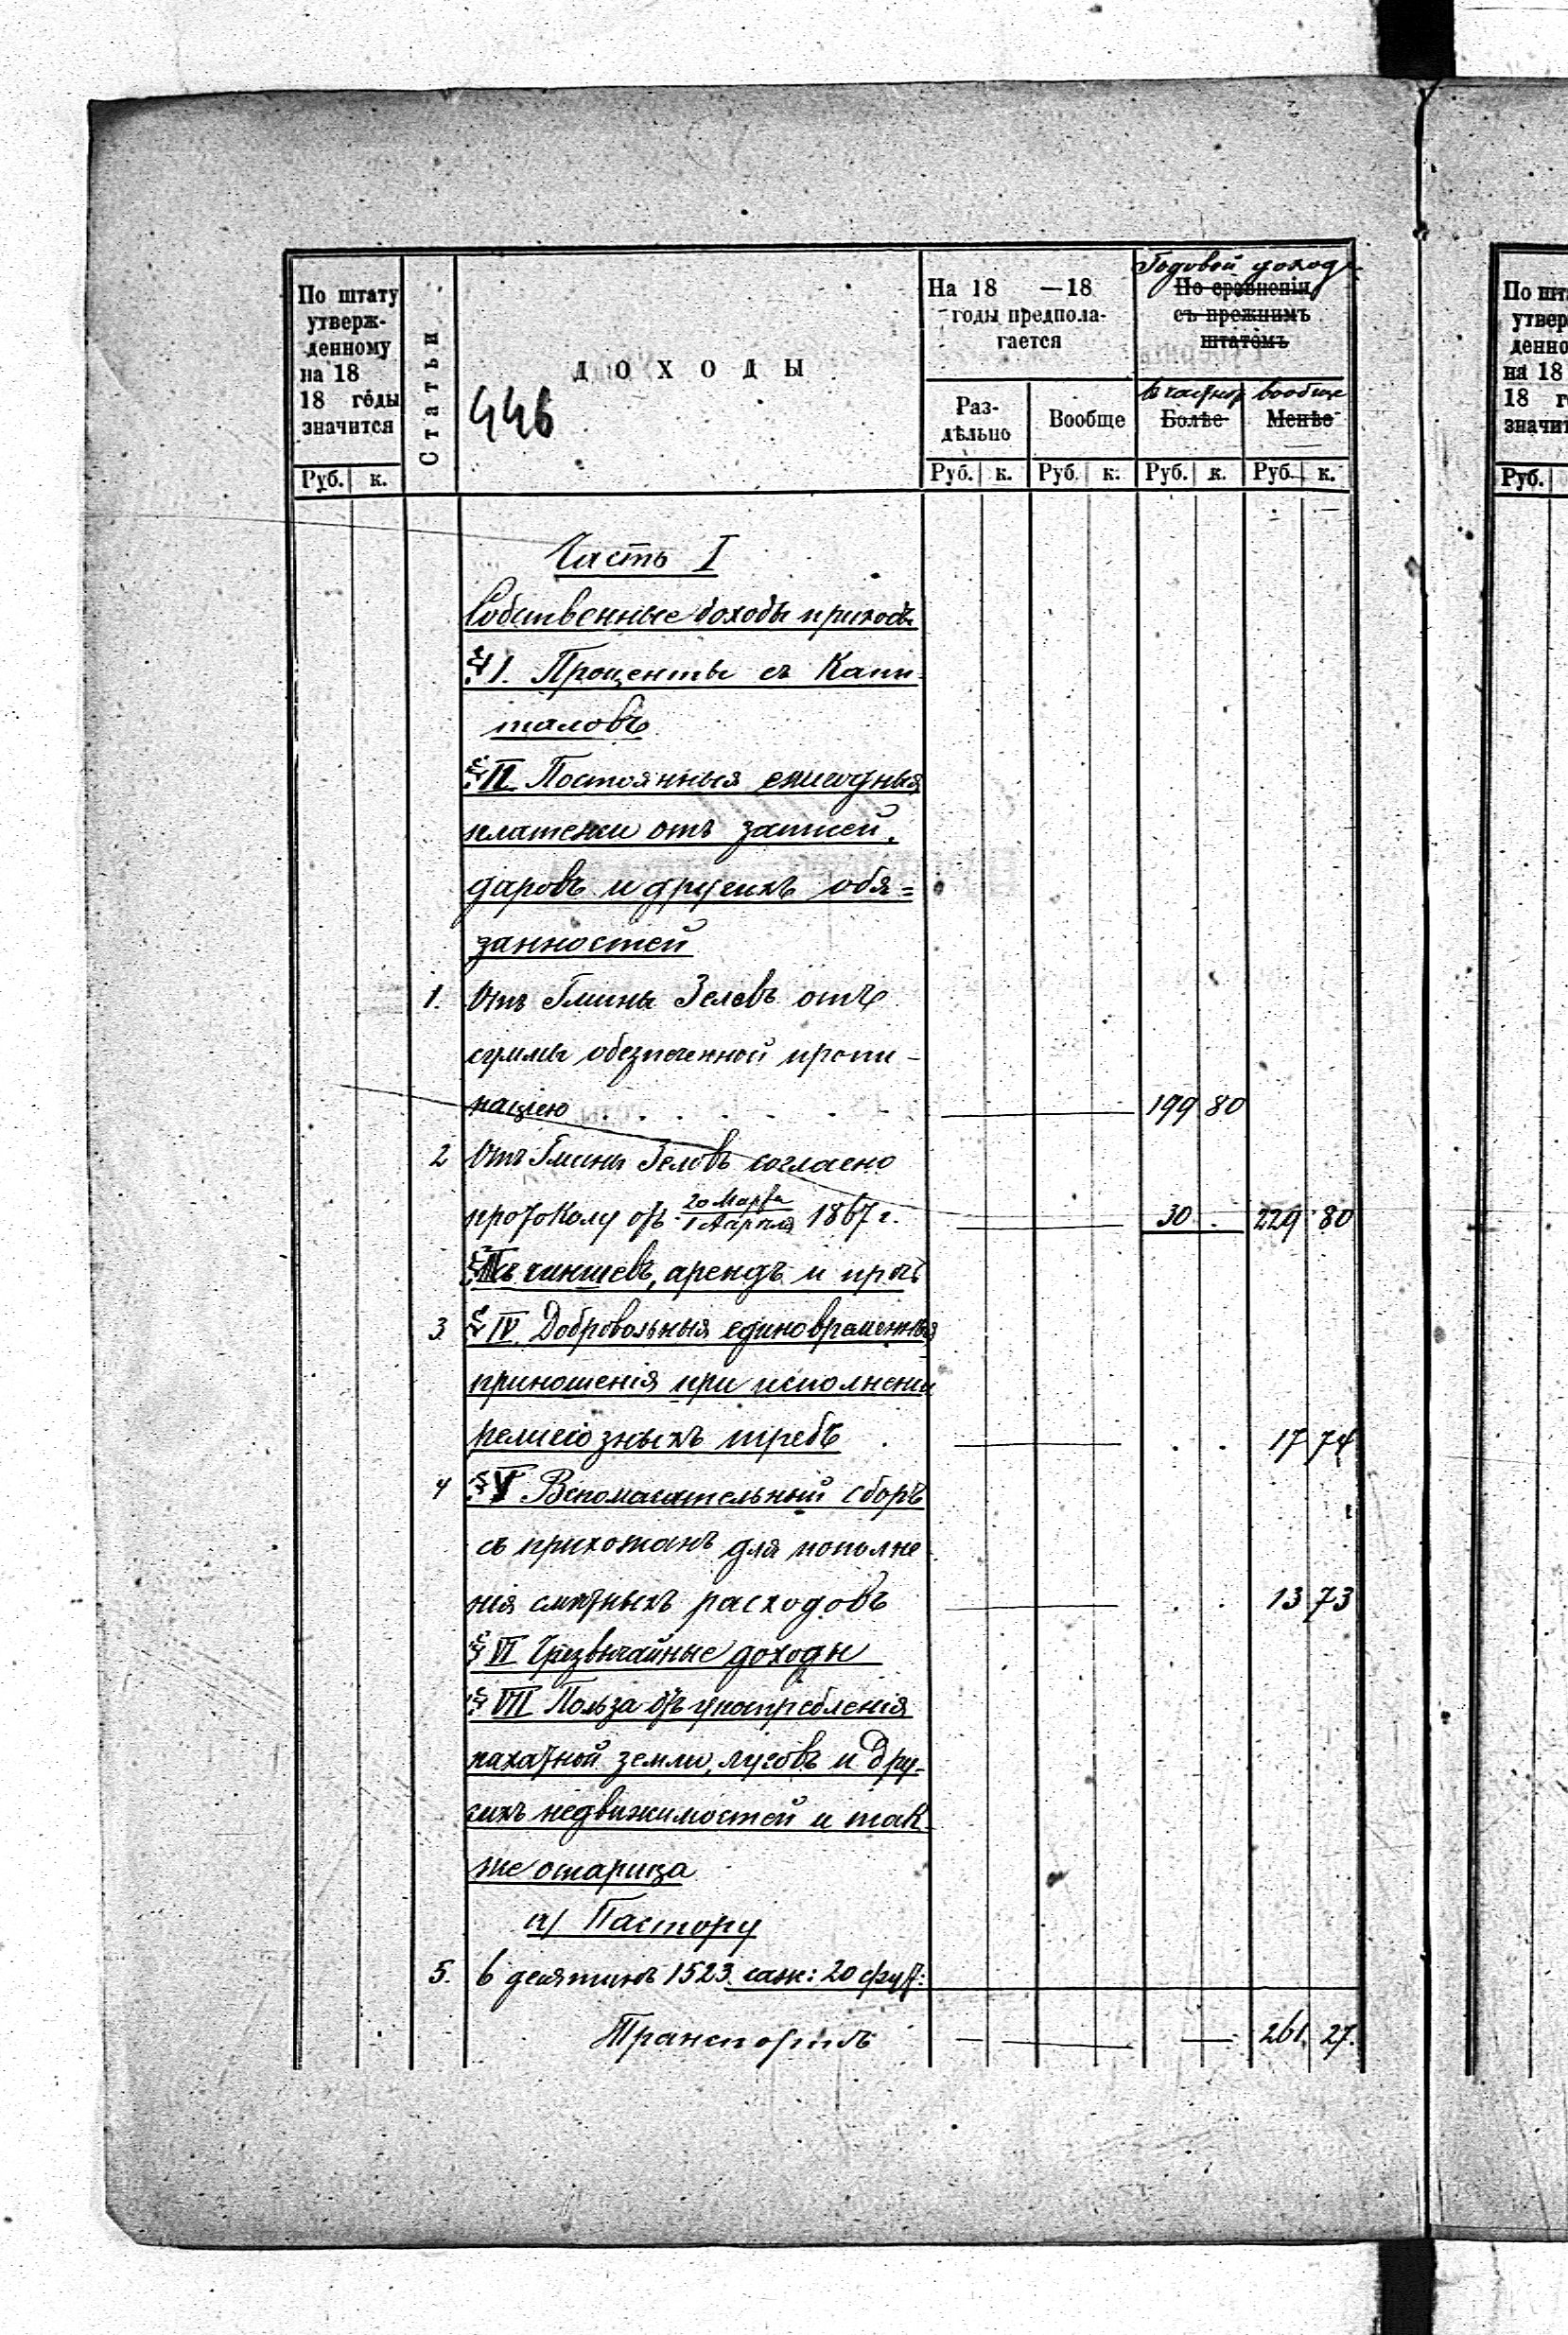 Годовой доходъ
По штату
утверж-
денному
на 18
18 годы
значится
Статьи
ДОХОДЫ
446
На 18 —18
годы предпола-
гается
По сравненію
съ прежнимъ
штатомъ
Раз-
дѣльно
Вообще
вообще
Болѣе
Менѣе
Руб. к.
Руб. к. Руб. к. Руб. к. Руб. к.
Часть I
Собственные доходы прихода
§ I. Проценты съ Капи-
таловъ
§ II Постоянныя ежегодныя
платежи отъ записей,
даровъ и другихъ обя=
занностей
1. Отъ Гмины Зеловъ отъ
суммы обезпеченной пропи-
націею 199 80
2 Отъ Гмины Зеловъ согласно
протоколу отъ 20 Марта / 1 Апрѣля 1867 г. 30 . 229 80
§ III Съ чиншевъ, арендъ и проч
3 § IV Добровольныя единовременныя
приношенія при исполненіи
религіозныхъ требъ . . . 17 74
4 § V Вспомагательный сборъ
съ прихожанъ для пополне-
нія смѣтныхъ расходовъ . . 13 73
§ VI Чрезвычайные доходы
§ VII Польза отъ употребленія
пахатной земли, луговъ и дру-
гихъ недвижимостей и так-
же
а) Пастору
5. 6 десятинъ 1523 саж: 20 фут:
Транспортъ — — — 261. 27.
По шт
утвер
денно
на 18
18 г
значит
Руб.